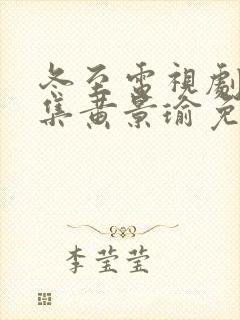 冬至電視劇
集黄景瑜免
李莹莹